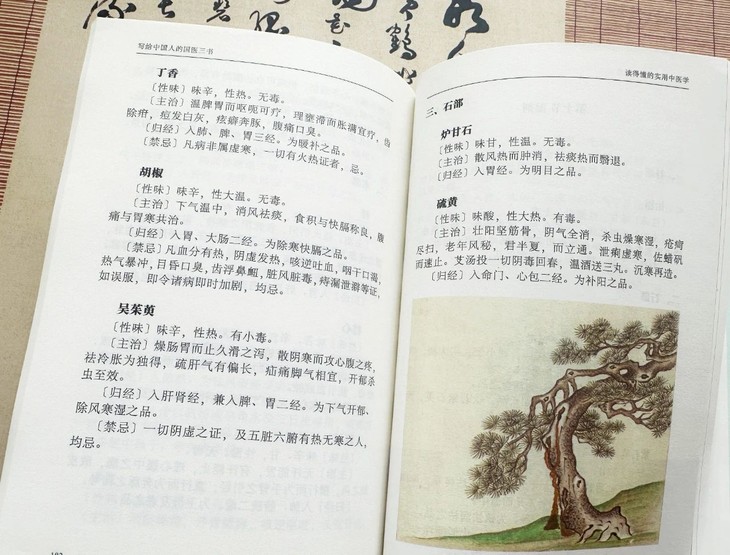 写给中国人的国医三书
丁香
〔性味〕味辛，性热。无毒。
〔主治〕温脾胃而呕呃可疗，理壅滞而胀满宜疗，齿
除疳，痘发白灰，痃癖奔豚，腹痛口臭。
〔归经〕入肺、脾、胃三经。为暖补之品。
〔禁忌〕凡病非属虚寒，一切有火热证者，忌。
胡椒
〔性味〕味辛，性大温。无毒。
〔主治〕下气温中，消风祛痰，食积与快膈称良，腹
痛与胃寒共治。
〔归经〕入胃、大肠二经。为除寒快膈之品。
〔禁忌〕凡血分有热，阴虚发热，咳逆吐血，咽干口渴，
热气暴冲，目昏口臭，齿浮鼻衄，脏风脏毒，痔漏泄澼等证，
如误服，即令诸病即时加剧，均忌。
吴茱萸
〔性味〕味辛，性热。有小毒。
〔主治〕燥肠胃而止久滑之泻，散阴寒而攻心腹之疼，
祛冷胀为独得，疏肝气有偏长，疝痛脚气相宜，开郁杀
虫至效。
〔归经〕入肝肾经，兼入脾、胃二经。为下气开郁、
除风寒湿之品。
〔禁忌〕一切阴虚之证，及五脏六腑有热无寒之人，
均忌。
读得懂的实用中医学
三、石部
炉甘石
〔性味〕味甘，性温。无毒。
〔主治〕散风热而肿消，祛痰热而翳退。
〔归经〕入胃经。为明目之品。
硫黄
〔性味〕味酸，性大热。有毒。
〔主治〕壮阳坚筋骨，阴气全消，杀虫燥寒湿，疮痾
尽扫，老年风秘，君半夏，而立通。泄痢虚寒，佐蜡矾
而速止。艾汤投一切阴毒回春，温酒送三丸。沉寒再造。
〔归经〕入命门、心包二经。为补阳之品。